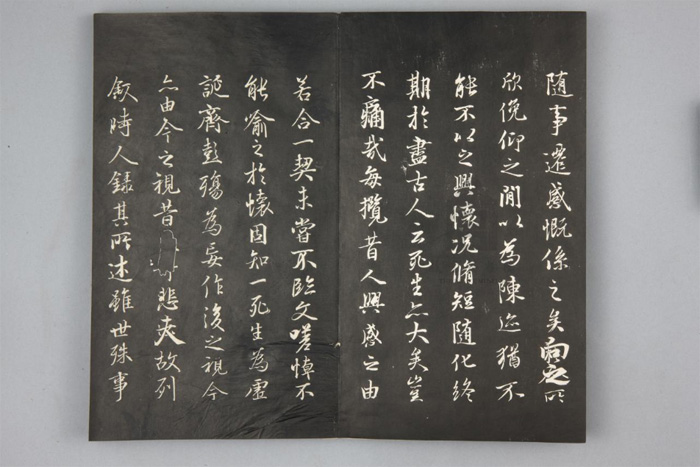 隨事遷感慨係之矣向之所
欣俛仰之閒以為陳迹猶不
能不以之興懷況脩短隨化終
期於盡古人云死生亦大矣豈
不痛哉每攬昔人興感之由
若合一契未嘗不臨文嗟悼不
能喻之於懷固知一死生為虛
誕齊彭殤為妄作後之視今
亦由今之視昔悲夫故列
敘時人錄其所述雖世殊事